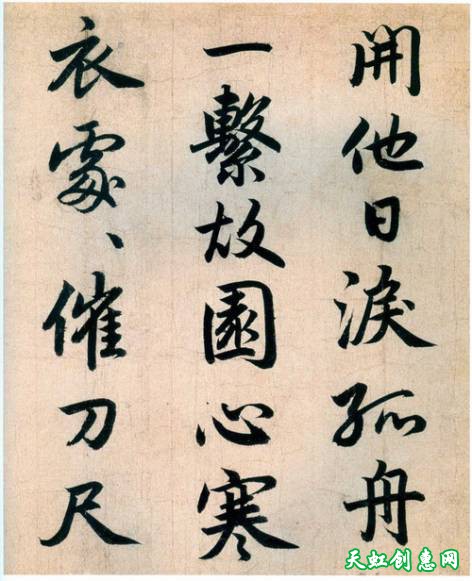 開他日淚孤舟
一繫故園心寒
衣處、催刀尺
天虹创惠网